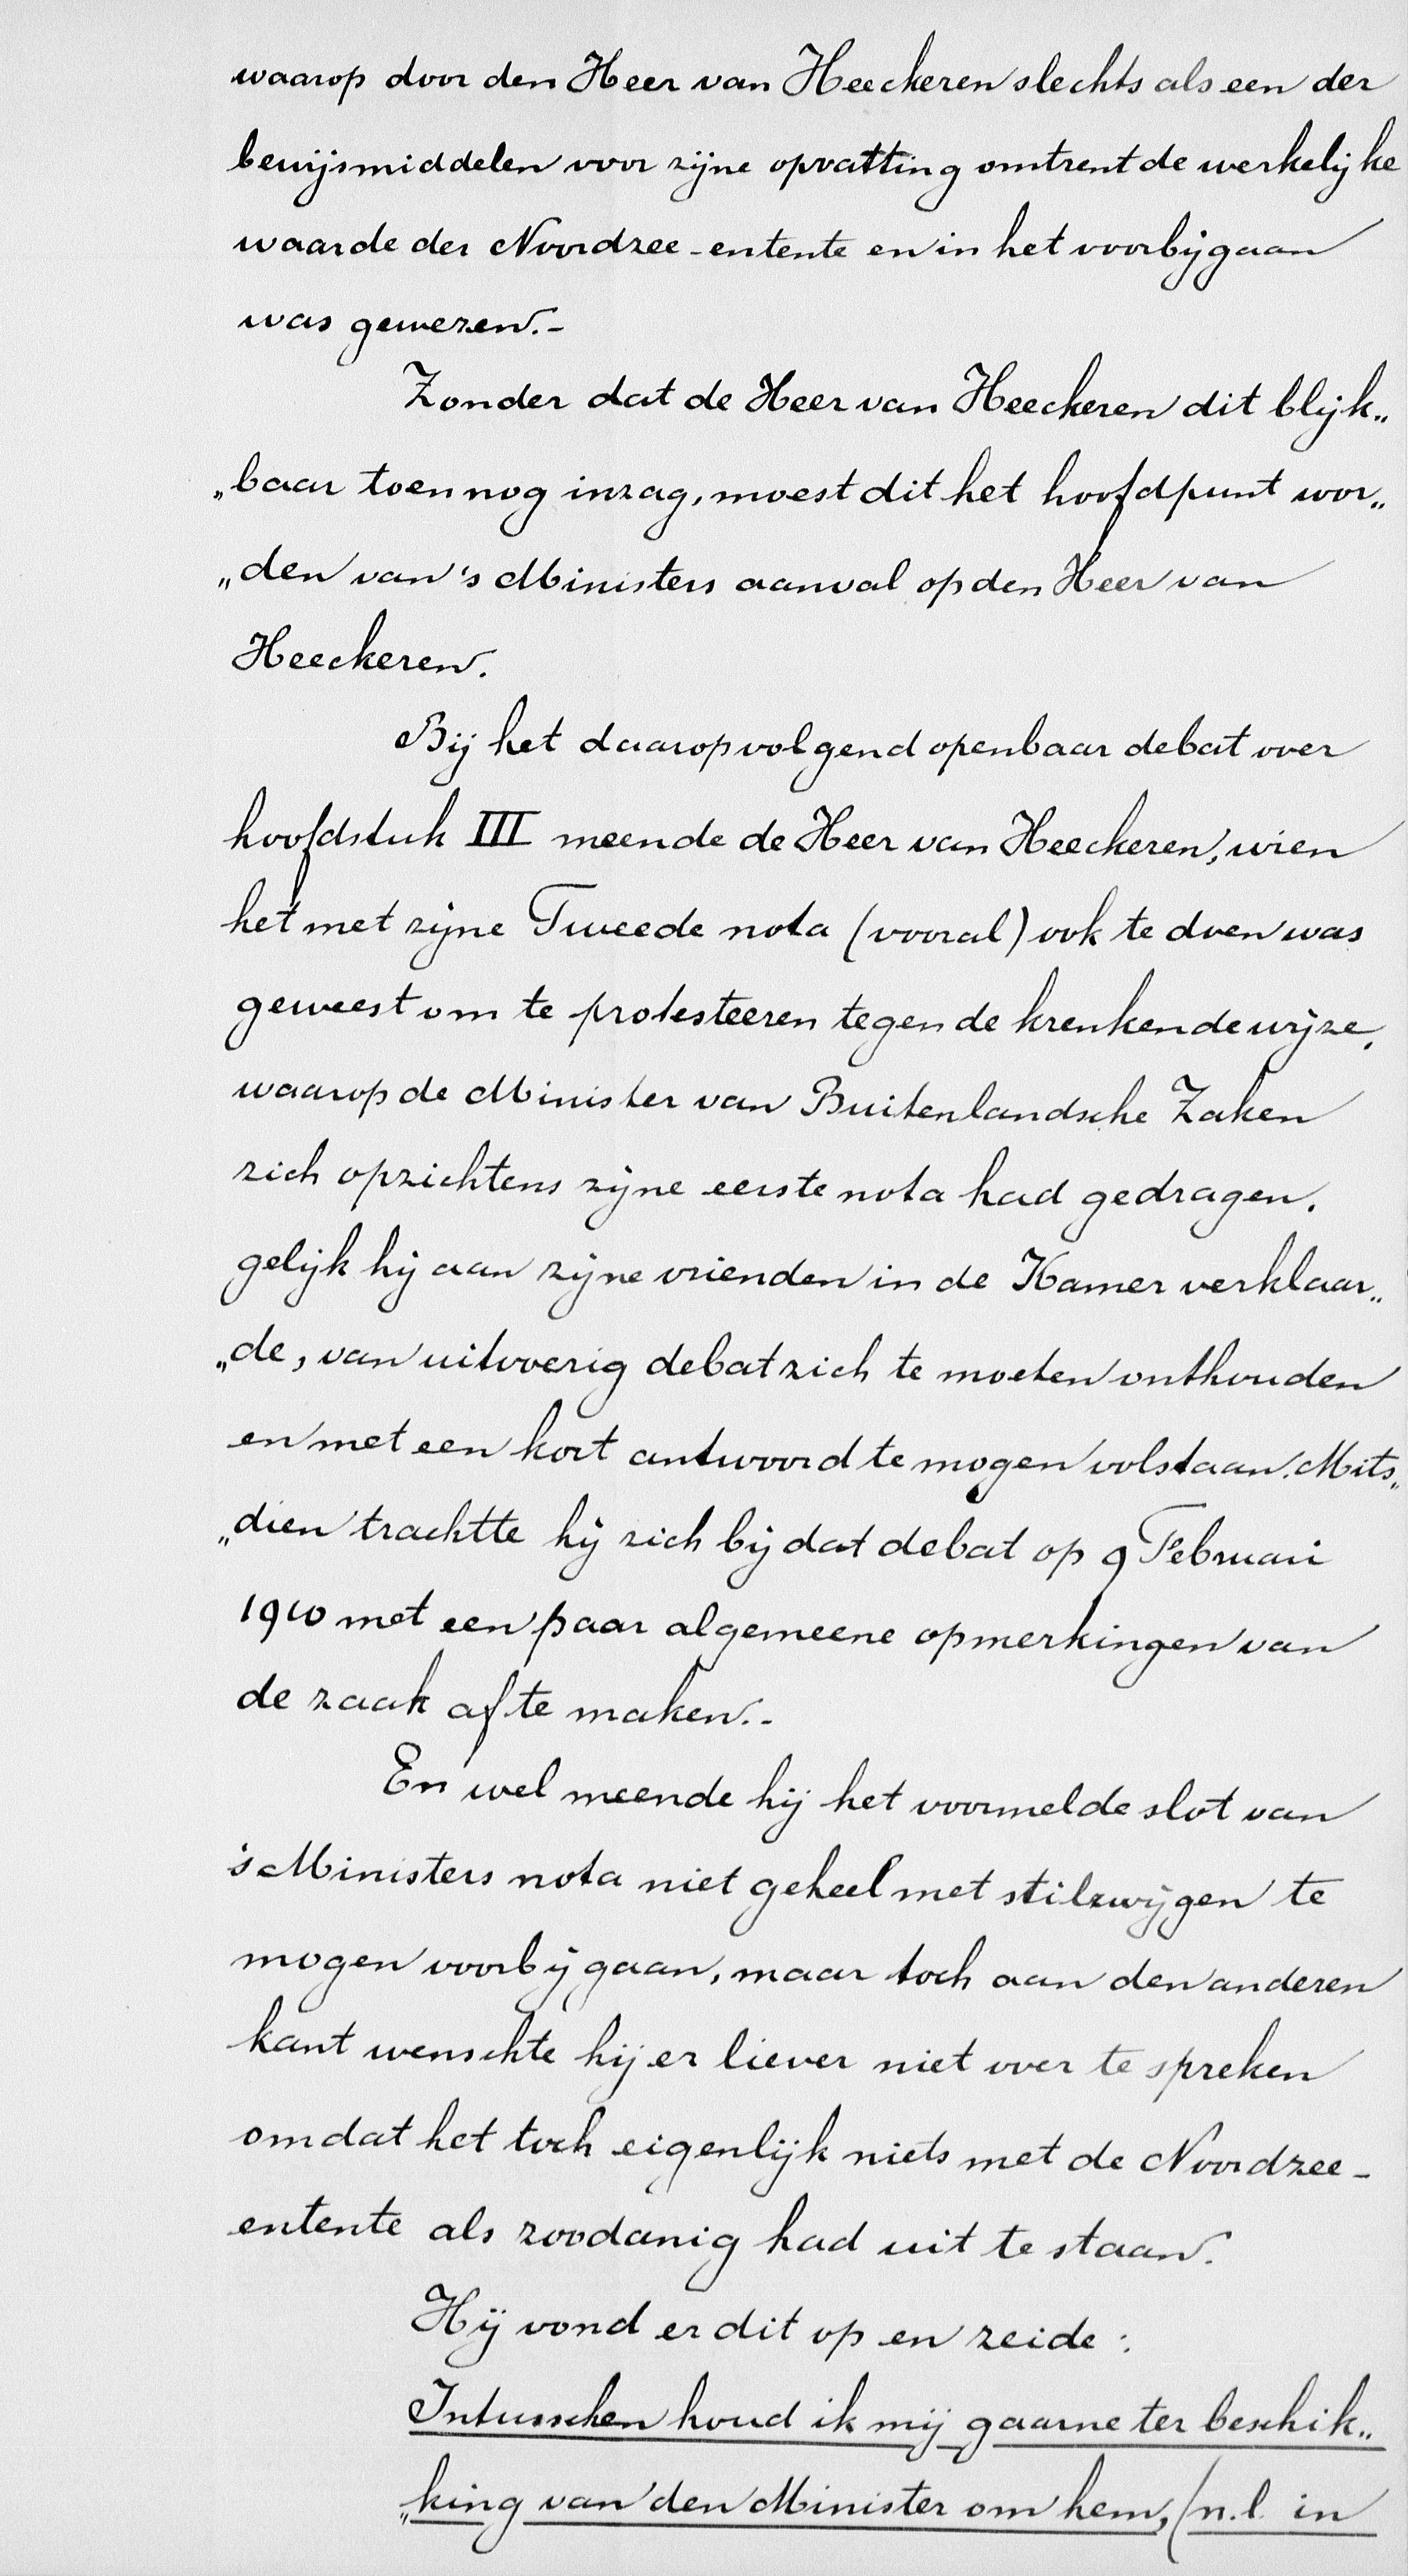 waarop door den Heer van Heeckeren slechts als een der
bewijsmiddelen voor zijne opvatting omtrent de werkelijke
waarde der Noordzee-entente en in het voorbijgaan
was gewezen.-
Zonder dat de Heer van Heeckeren dit blijk„
„baar toen nog inzag, moest dit het hoofdpunt wor„
„den van 's Ministers aanval op den Heer van
Heeckeren.
Bij het daaropvolgend openbaar debat over
hoofdstuk III meende de Heer van Heeckeren, wien
het met zijne Tweede nota (vooral) ook te doen was
geweest om te protesteeren tegen de krenkende wijze,
waarop de Minister van Buitenlandsche Zaken
zich opzichtens zijne eerste nota had gedragen,
gelijk hij aan zijne vrienden in de Kamer verklaar„
„de, van uitvoerig debat zich te moeten onthouden
en met een kort antwoord te mogen volstaan. Mits„
„dien trachtte hij zich bij dat debat op 9 Februari
1910 met een paar algemeene opmerkingen van
de zaak af te maken.-
En wel meende hij het voormelde slot van
's Ministers nota niet geheel met stilzwijgen te
mogen voorbijgaan, maar toch aan den anderen
kant wenschte hij er liever niet over te spreken
omdat het toch eigenlijk niets met de Noordzee-
entente als zoodanig had uit te staan.
Hij vond er dit op en zeide:
Intusschen houd ik mij gaarne ter beschik„
„king van den Minister om hem, (n.l. in